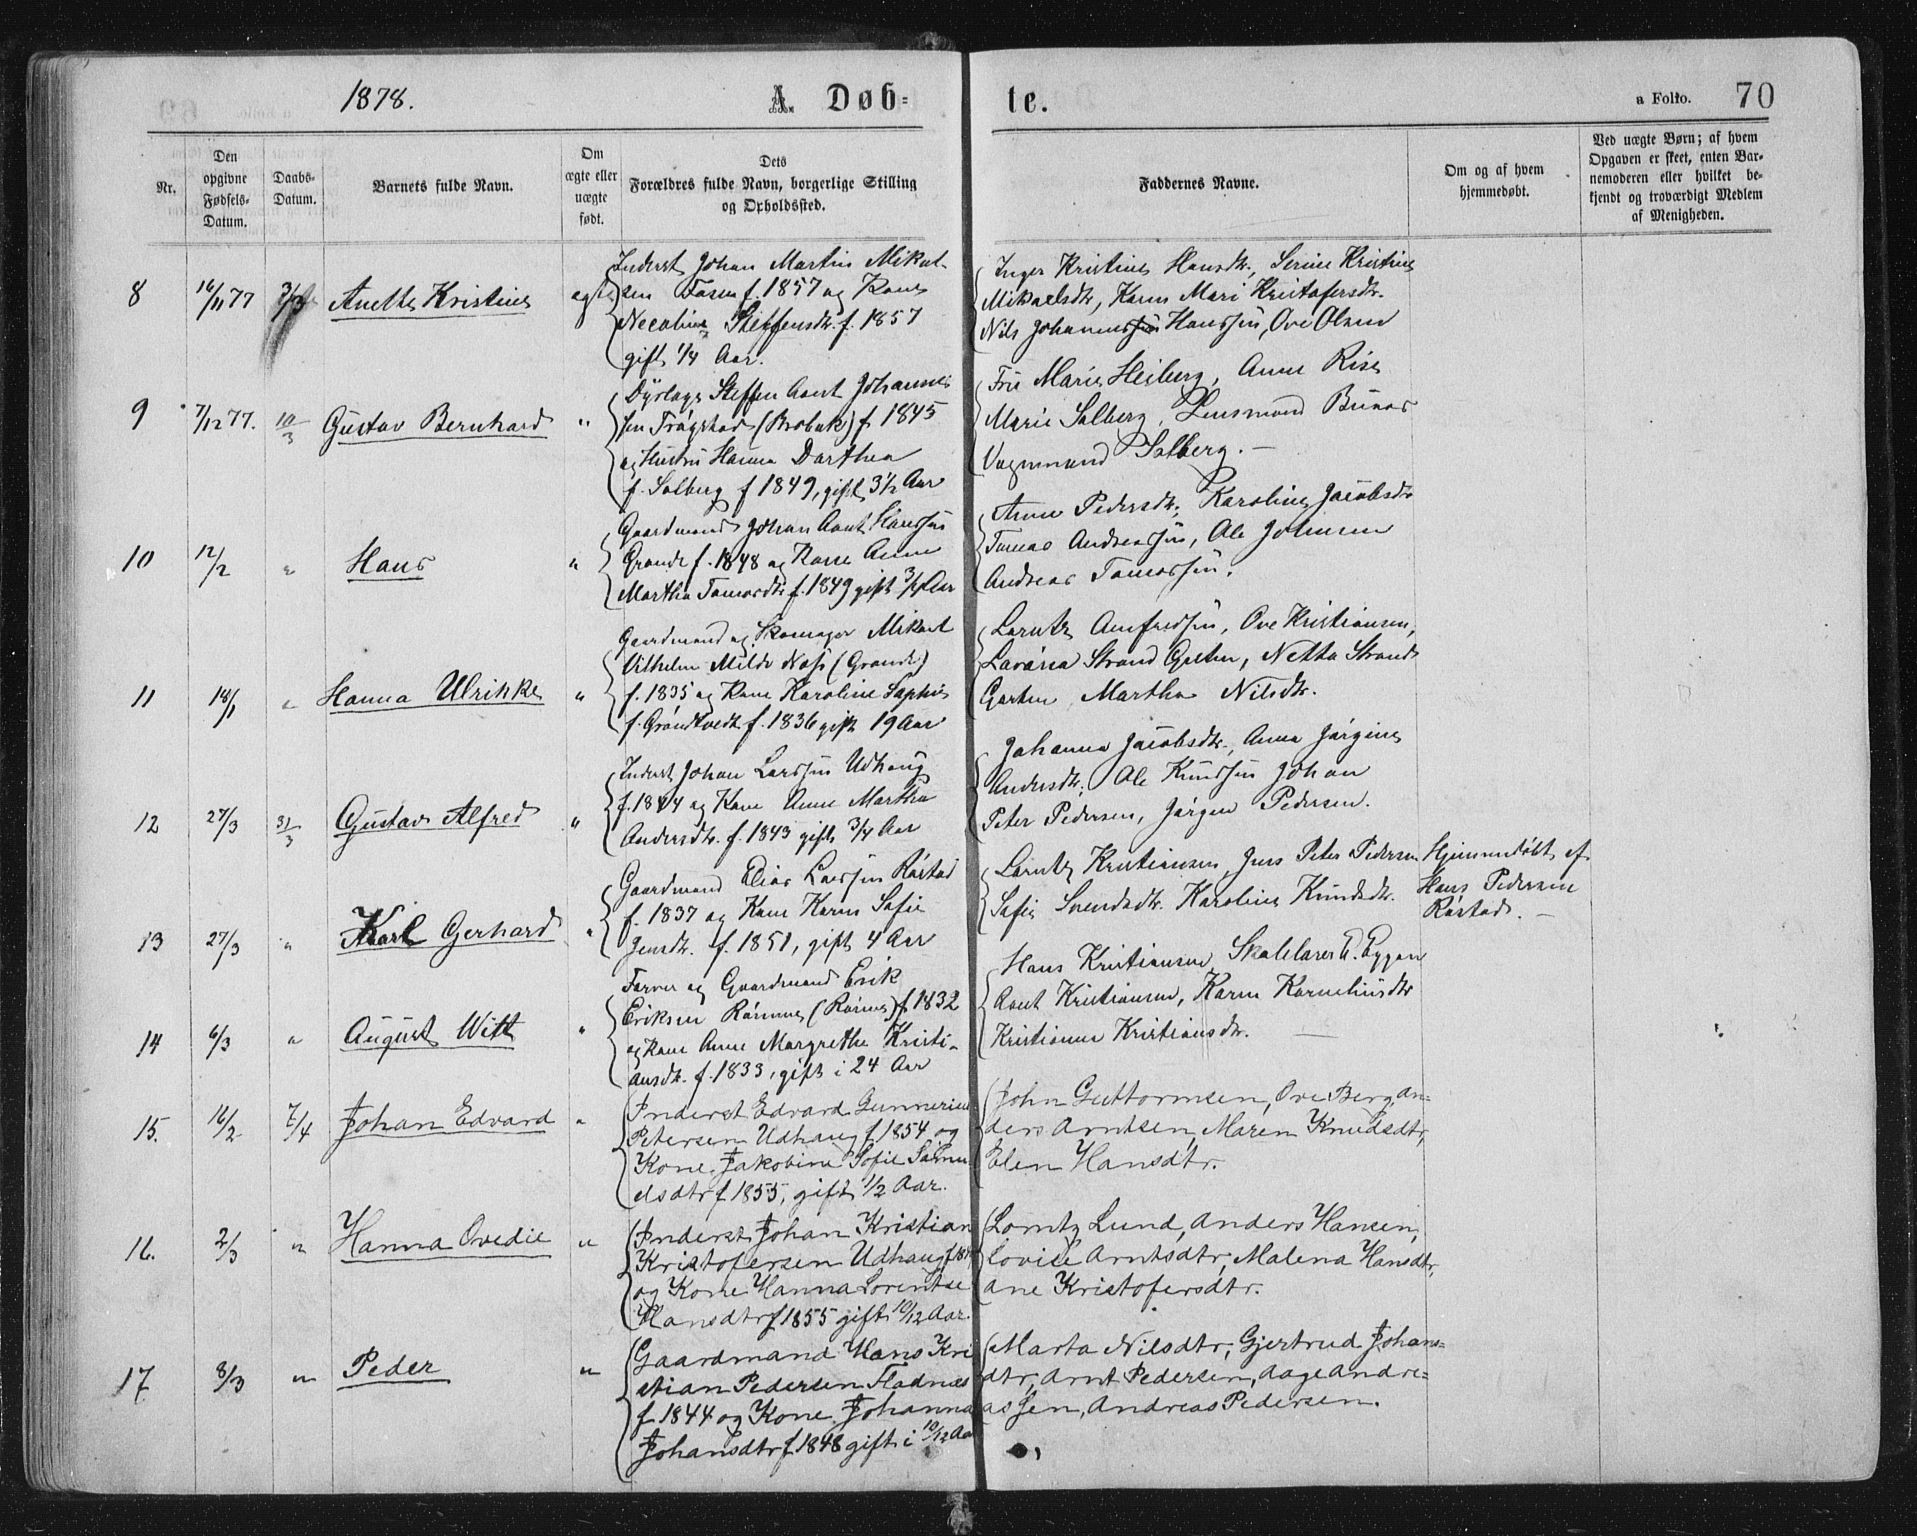 1878.
A. Døb=
te.
a Folio. 70
Nr.
Den opgivne Fødsels-Datum.
Daabs-Datum.
Barnets fulde Navn.
Om ægte eller uægte født.
Dets Forældres fulde Navn, borgerlige Stilling og Opholdssted.
Faddernes Navne.
Om og af hvem hjemmedøbt.
Ved uægte Børn; af hvem Opgaven er skeet, enten Barnemoderen eller hvilket bekjendt og troværdigt Medlem af Menigheden.
8 16/11 77 Anette Kristine ægte
Inderst Johan Martin Mikal-
sen f. 1857 og Kone
Steffensdtr. f. 1857
gift 1/4 Aar.
Inger Kristine Hansdtr., Serine Kristine
Mikaelsdtr, Karen Mari Kristofersdtr.
Nils Hanssen, Ove Olsen
9 7/12 77. 10/3 Gustav Bernhard "
Dyrlæge Steffen Arnt Johannes
sen (Brobak) f 1845
og Hustru Hanna Dorthea
f. Solberg f 1849, gift 3 1/2 Aar
Frue Marie Heiberg, Anne Rise
Marie Solberg, Lensmand Brunar
Vagnmand Solberg. —
10 12/2 " Hans "
Gaardmand Johan Arnt Hanssen
Grande f. 1848 og Kone Anne
Martha Tomasdtr f. 1849 gift 3/4 Aar
Anne Pedersdtr, Karoline Jacobsdtr
Tomas Andreassen, Ole Johnsen
Andreas Tomassen.
11 18/1 " Hanna Ulrikke "
Gaardmand og Skomager Mikael
Vilhelm Milde Næss (Grande)
f. 1835 og Kone Karoline Sophie
f. Grøndtvedt f. 1836 gift 19 Aar
Lorntz Arnfredsen, Ove Kristiansen,
Strand Garten, Netta Strand
Garten, Martha Nilsdtr.
12 27/3 31/3 Gustav Alfred "
Inderst Johan Larssen Udhaug
f. 1844 og Kone Anne Martha
Andersdtr. f. 1843 gift 3/4 Aar
Johanna Jacobsdtr., Anna Jørgine
Andersdtr, Ole Knudsen Johan
Peter Pedersen, Jørgen Pedersen.
13 27/3 " Karl Gerhard "
Gaardmand Elias Larssen Røstad
f. 1837 og Kone Karen Sofie
Jensdtr. f. 1851, gift 4 Aar
Lorntz Kristiansen, Jens Peter Pedersen
Sofie Svendsdtr. Karoline Knudsdtr.
Hjemmedøbt af
Hans Pedersen
Røstad. —
14 6/3 " August Witt "
Farver og Gaardmand Erik
Eriksen f 1832
og Kone Anne Margrethe Kristi-
ansdtr. f. 1833, gift i 24 Aar
Hans Kristiansen, Skolelærer E. Eggan
Arnt Kristiansen, Karen Korneliusdtr
Kristianna Kristiansdtr. —
15. 16/2 7/4 Johan Edvard "
Inderst Edvard Gunnerius
Petersen Udhaug f 1854 og
Kone Jakobine Sofie Samu
elsdtr f 1855, gift 1/2 Aar.
John Guttormsen, Ove Berg An-
ders Arntsen, Maren Knudsdtr,
Elen Hansdtr.
16. 2/3 " Hanna Ovedie "
Inderst Johan Kristian
Kristofersen Udhaug
og Kone Hanna Lorentse
Hansdtr f 1855 gift 10/12 Aar.
Lorntz Lund, Anders Hansen,
Lovise Arntsdtr, Malena Hansdtr,
Ane Kristofersdtr.
17 8/3 " Peder "
Gaardmand Hans Kri
stian Pedersen Fladnæs
f 1844 og Kone Johanna
Johansdtr f 1848 gift i 10/12 Aar
Marta Nilsdtr, Gjertrud Johans=
dtr, Arnt Pedersen, Aage Andre=
assen, Andreas Pedersen.